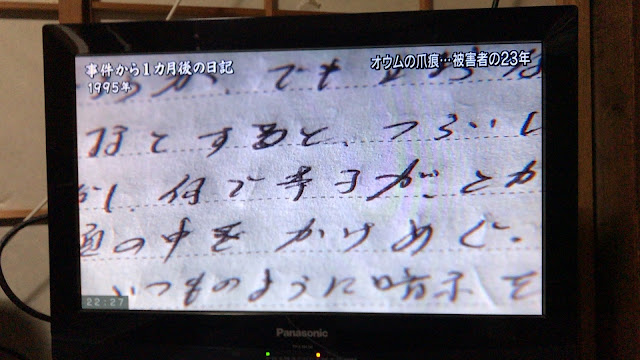 事件から1カ月後の日記
1995年
オウムの爪痕…被害者の23年
か、でも
ほとすると、つらいし
かし、何で幸子が、とか
の中を かけめぐ。
いつものように暗示を
22:27
Panasonic